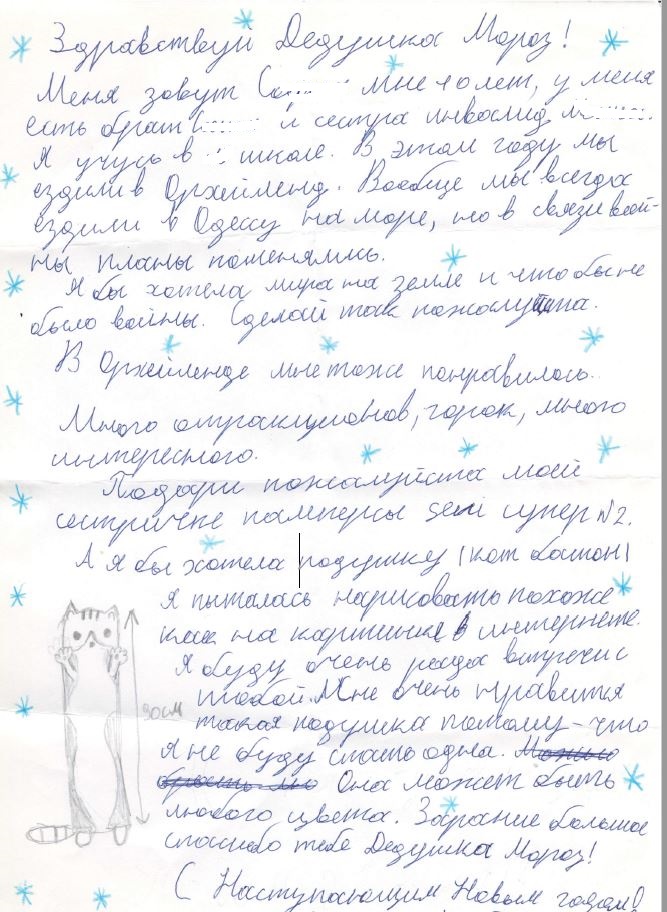 Здравствуй Дедушка Мороз!
Меня зовут С мне 10 лет, у меня
есть брат и сестра инвалид
Я учусь в школе. В этом году мы
ездили в Орхейленд. Вообще мы всегда
ездили в Одессу на море, но в связи вой-
ны планы поменялись.
Я бы хотела мира на земле и что бы не
было войны. Сделай так пожалуйста.
В Орхейленде мне тоже понравилось.
Много атракционов, горок, много
интересного.
Подари пожалуйста моей
сестричке памперсы seni супер №2.
А я бы хотела подушку (кот батон)
я пыталась нарисовать похоже
как на картинке в интернете.
Я буду очень рада встречи с
тобой. Мне очень нравится
30см такая подушка потому-что
я не буду спать одна.
Она может быть
любого цвета. Зарание большое
спасибо тебе Дедушка Мороз!
С Наступающим Новым годом!